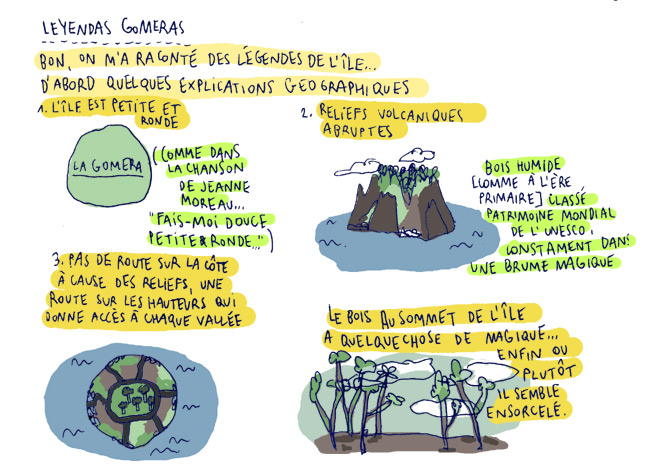 LEYENDAS GOMERAS
BON, ON M'A RACONTÉ DES LÉGENDES DE L'ÎLE...
D'ABORD QUELQUES EXPLICATIONS GEOGRAPHIQUES
1. L'ÎLE EST PETITE ET
RONDE
LA GOMERA
(COMME DANS
LA CHANSON
DE JEANNE
MOREAU...
"FAIS-MOI DOUCE
PETITE & RONDE...")
2. RELIEFS VOLCANIQUES
ABRUPTES
BOIS HUMIDE
[COMME À L'ÈRE
PRIMAIRE] CLASSÉ
PATRIMOINE MONDIAL
DE L'UNESCO,
CONSTAMENT DANS
UNE BRUME MAGIQUE
3. PAS DE ROUTE SUR LA CÔTE
À CAUSE DES RELIEFS, UNE
ROUTE SUR LES HAUTEURS QUI
DONNE ACCÈS À CHAQUE VALLÉE
LE BOIS AU SOMMET DE L'ÎLE
A QUELQUE CHOSE DE MAGIQUE...
ENFIN OU
PLUTÔT
IL SEMBLE
ENSORCELÉ.